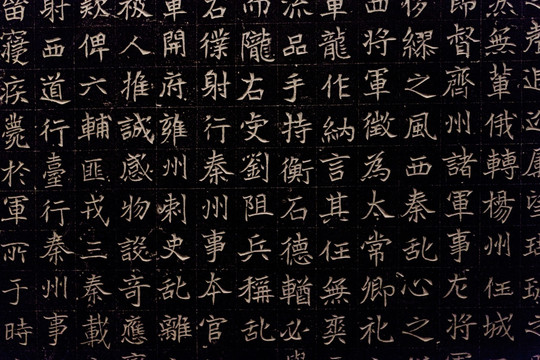 無輩俄轉楊州任城
督齊州諸軍事左将
繆之風西秦乱沁之
西将軍徵為太常卿礼
軍龍作納言其任無爽
流品手持衡石德輶必
而隴右安劉阻兵稱乱
右僕射行秦州事本官
軍開府雍州刺史乱離
被人推誠感物設奇應
款俾六輔匪戎三秦載
射西道行臺行秦州事
留寢疾薨於軍所于時